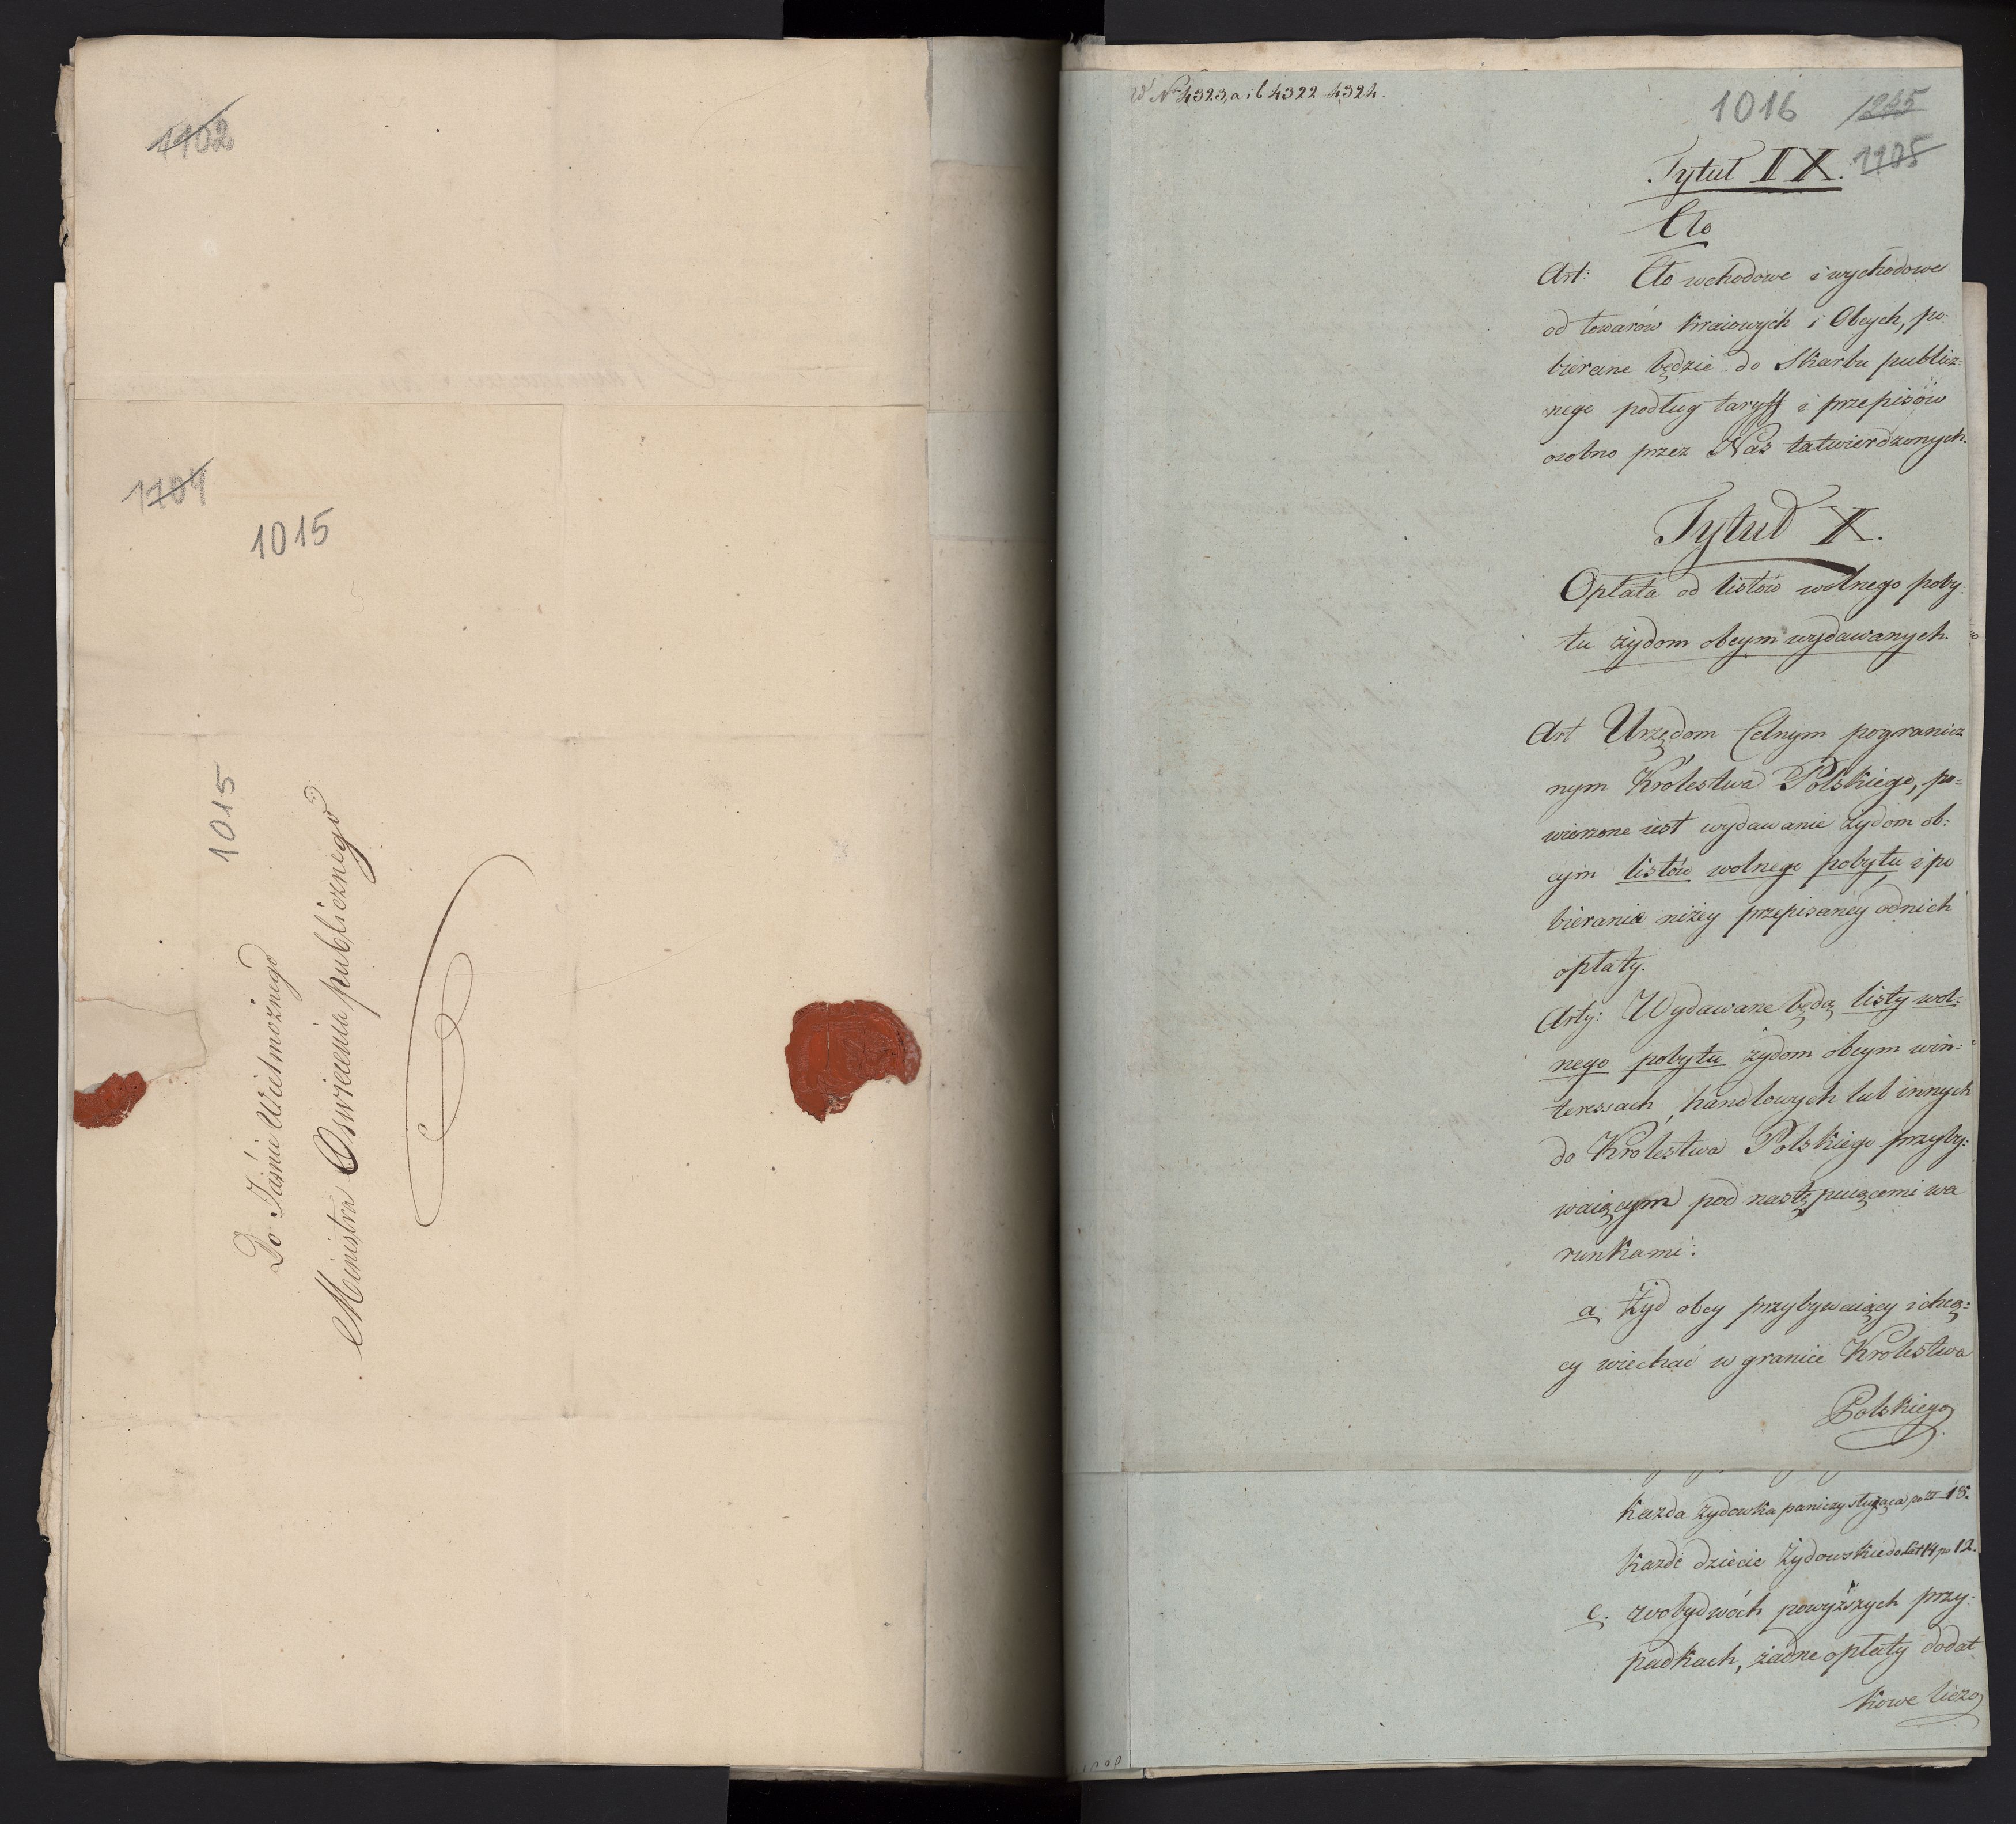 1102
1104
1015
1015
Do Jaśnie Wielmożnego
Ministra Oświecenia publicznego
W No 4323, a i b 4322 4324.
1016 1245
1105
Tytuł IX.
Cło
Art: Cło wchodowe i wychodowe
od towarów kraiowych i Obcych, po-
bierane będzie do Skarbu publicz=
nego podług taryff i przepisów
osobno przez Nas zatwierdzonych.
Tytuł X.
Opłata od listów wolnego poby:
tu żydom obcym wydawanych.
Art Urzędom Celnym pogranicz
nym Królestwa Polskiego, po=
wierzone iest wydawanie żydom ob:
cym listów wolnego pobytu i po
bieranie niżey przepisanéy od nich
opłaty.
Arty: Wydawane będą listy wol:
nego pobytu żydom obcym w in:
teressach handlowych lub innych
do Królestwa Polskiego przyby:
waiącym pod następuiącemi wa
runkami:
a Żyd obcy przybywaiący i chcą=
cy wiechać w granice Królestwa
Polskiego
każda żydowka pani czy służąca po zł 18.
każde dziecie żydowskie do Lat 14 po 12.
c. w obydwóch powyższych przy:
padkach, żadne opłaty dodat
kowe